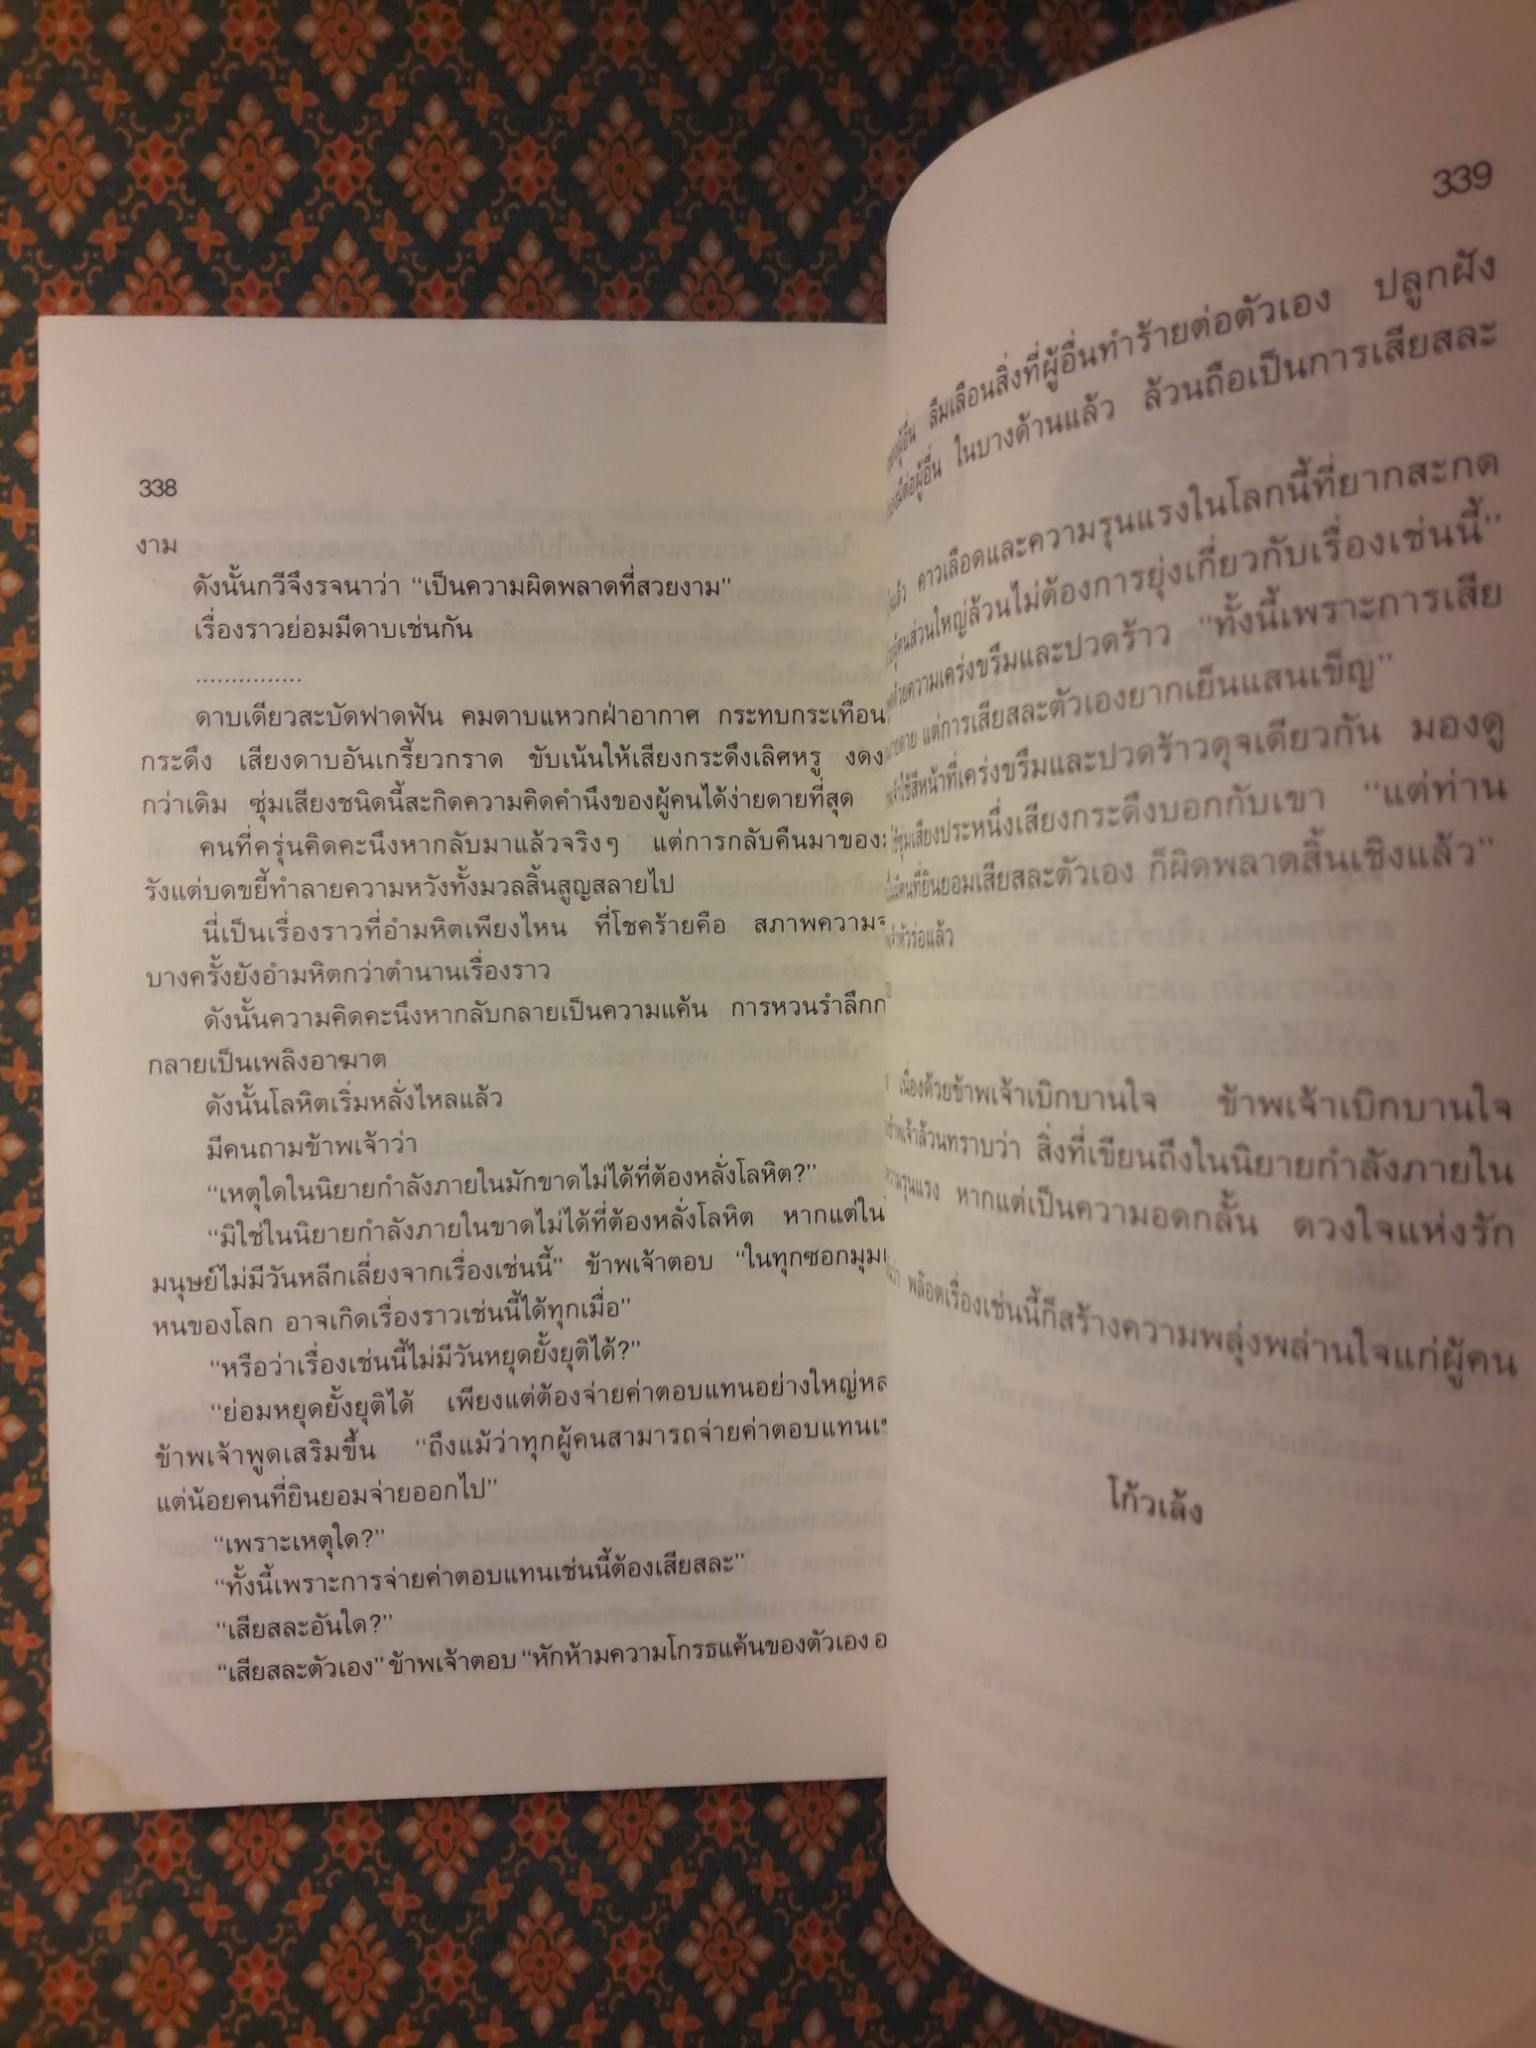 338
งาม
ดังนั้นกวีจึงรจนาว่า “เป็นความผิดพลาดที่สวยงาม”
เรื่องราวย่อมมีดาบเช่นกัน
...............
ดาบเดียวสะบัดฟาดฟัน คมดาบแหวกฝ่าอากาศ กระทบกระเทือน
กระดึง เสียงดาบอันเกรี้ยวกราด ขับเน้นให้เสียงกระดึงเลิศหรู งดง
กว่าเดิม ซุ่มเสียงชนิดนี้สะกิดความคิดคำนึงของผู้คนได้ง่ายดายที่สุด
คนที่ครุ่นคิดคะนึงหากลับมาแล้วจริงๆ แต่การกลับคืนมาของ
รังแต่บดขยี้ทำลายความหวังทั้งมวลสิ้นสูญสลายไป
นี่เป็นเรื่องราวที่อำมหิตเพียงไหน ที่โชคร้ายคือ สภาพความ
บางครั้งยังอำมหิตกว่าตำนานเรื่องราว
ดังนั้นความคิดคะนึงหากลับกลายเป็นความแค้น การหวนรำลึกก
กลายเป็นเพลิงอาฆาต
ดังนั้นโลหิตเริ่มหลั่งไหลแล้ว
มีคนถามข้าพเจ้าว่า
“เหตุใดในนิยายกำลังภายในมักขาดไม่ได้ที่ต้องหลั่งโลหิต?”
“มิใช่ในนิยายกำลังภายในขาดไม่ได้ที่ต้องหลั่งโลหิต หากแต่ใน
มนุษย์ไม่มีวันหลีกเลี่ยงจากเรื่องเช่นนี้” ข้าพเจ้าตอบ “ในทุกซอกมุม
หนของโลก อาจเกิดเรื่องราวเช่นนี้ได้ทุกเมื่อ”
“หรือว่าเรื่องเช่นนี้ไม่มีวันหยุดยั้งยุติได้?”
“ย่อมหยุดยั้งยุติได้ เพียงแต่ต้องจ่ายค่าตอบแทนอย่างใหญ่หล
ข้าพเจ้าพูดเสริมขึ้น “ถึงแม้ว่าทุกผู้คนสามารถจ่ายค่าตอบแทนเ
แต่น้อยคนที่ยินยอมจ่ายออกไป”
“เพราะเหตุใด?”
“ทั้งนี้เพราะการจ่ายค่าตอบแทนเช่นนี้ต้องเสียสละ”
“เสียสละอันใด?”
“เสียสละตัวเอง” ข้าพเจ้าตอบ “หักห้ามความโกรธแค้นของตัวเอง อ
339
ผู้อื่น ลืมเลือนสิ่งที่ผู้อื่นทำร้ายต่อตัวเอง ปลูกฝัง
มีต่อผู้อื่น ในบางด้านแล้ว ล้วนถือเป็นการเสียสละ
แล้ว คาวเลือดและความรุนแรงในโลกนี้ที่ยากสะกด
ผู้คนส่วนใหญ่ล้วนไม่ต้องการยุ่งเกี่ยวกับเรื่องเช่นนี้”
ด้วยความเคร่งขรึมและปวดร้าว “ทั้งนี้เพราะการเสีย
แต่การเสียสละตัวเองยากเย็นแสนเข็ญ”
ใช้สีหน้าที่เคร่งขรึมและปวดร้าวดุจเดียวกัน มองดู
ซุ่มเสียงประหนึ่งเสียงกระดึงบอกกับเขา “แต่ท่าน
มีคนที่ยินยอมเสียสละตัวเอง ก็ผิดพลาดสิ้นเชิงแล้ว”
หัวร่อแล้ว
เนื่องด้วยข้าพเจ้าเบิกบานใจ ข้าพเจ้าเบิกบานใจ
ข้าพเจ้าล้วนทราบว่า สิ่งที่เขียนถึงในนิยายกำลังภายใน
ความรุนแรง หากแต่เป็นความอดกลั้น ดวงใจแห่งรัก
พล็อตเรื่องเช่นนี้ก็สร้างความพลุ่งพล่านใจแก่ผู้คน
โก้วเล้ง